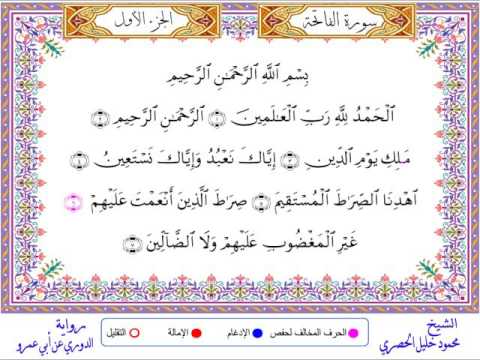 سورة الفاتحة
الجزء الأول
بِسْمِ ٱللَّهِ ٱلرَّحْمَٰنِ ٱلرَّحِيمِ
ٱلْحَمْدُ لِلَّهِ رَبِّ ٱلْعَٰلَمِينَ ١ ٱلرَّحْمَٰنِ ٱلرَّحِيمِ ٢
مَلِكِ يَوْمِ ٱلدِّينِ ٣ إِيَّاكَ نَعْبُدُ وَإِيَّاكَ نَسْتَعِينُ ٤
ٱهْدِنَا ٱلصِّرَٰطَ ٱلْمُسْتَقِيمَ ٥ صِرَٰطَ ٱلَّذِينَ أَنْعَمْتَ عَلَيْهِمْ ٦
غَيْرِ ٱلْمَغْضُوبِ عَلَيْهِمْ وَلَا ٱلضَّآلِّينَ ٧
الشيخ
محمود خليل الحصري
الحرف المخالف لحفص
الإدغام
الإمالة
التقليل
رواية
الدوري عن أبي عمرو